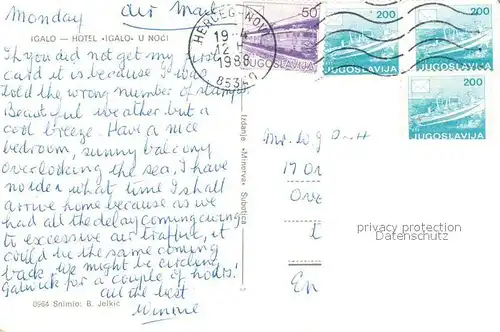 Monday
Air Mail
IGALO — HOTEL «IGALO» U NOĆI
If you did not get my first
card it is because I was
told the wrong number of stamps
Beautiful weather but a
cool breeze. Have a nice
bedroom, sunny balcony
overlooking the sea, I have
no idea what time I shall
arrive home because as we
had all the delay coming owing
to excessive air traffic, it
could be the same coming
back, we might be circling
Gatwick for a couple of hours!
all the best
Winnie
0964 Snimio: B. Jelkić
Izdanje «Minerva» Subotica
HERCEG-NOVI
19-4
12 H
1988
85340
50
JUGOSLAVIJA
200
JUGOSLAVIJA
200
JUGOSLAVIJA
200
JUGOSLAVIJA
Mr. W G
17
privacy protection
Datenschutz